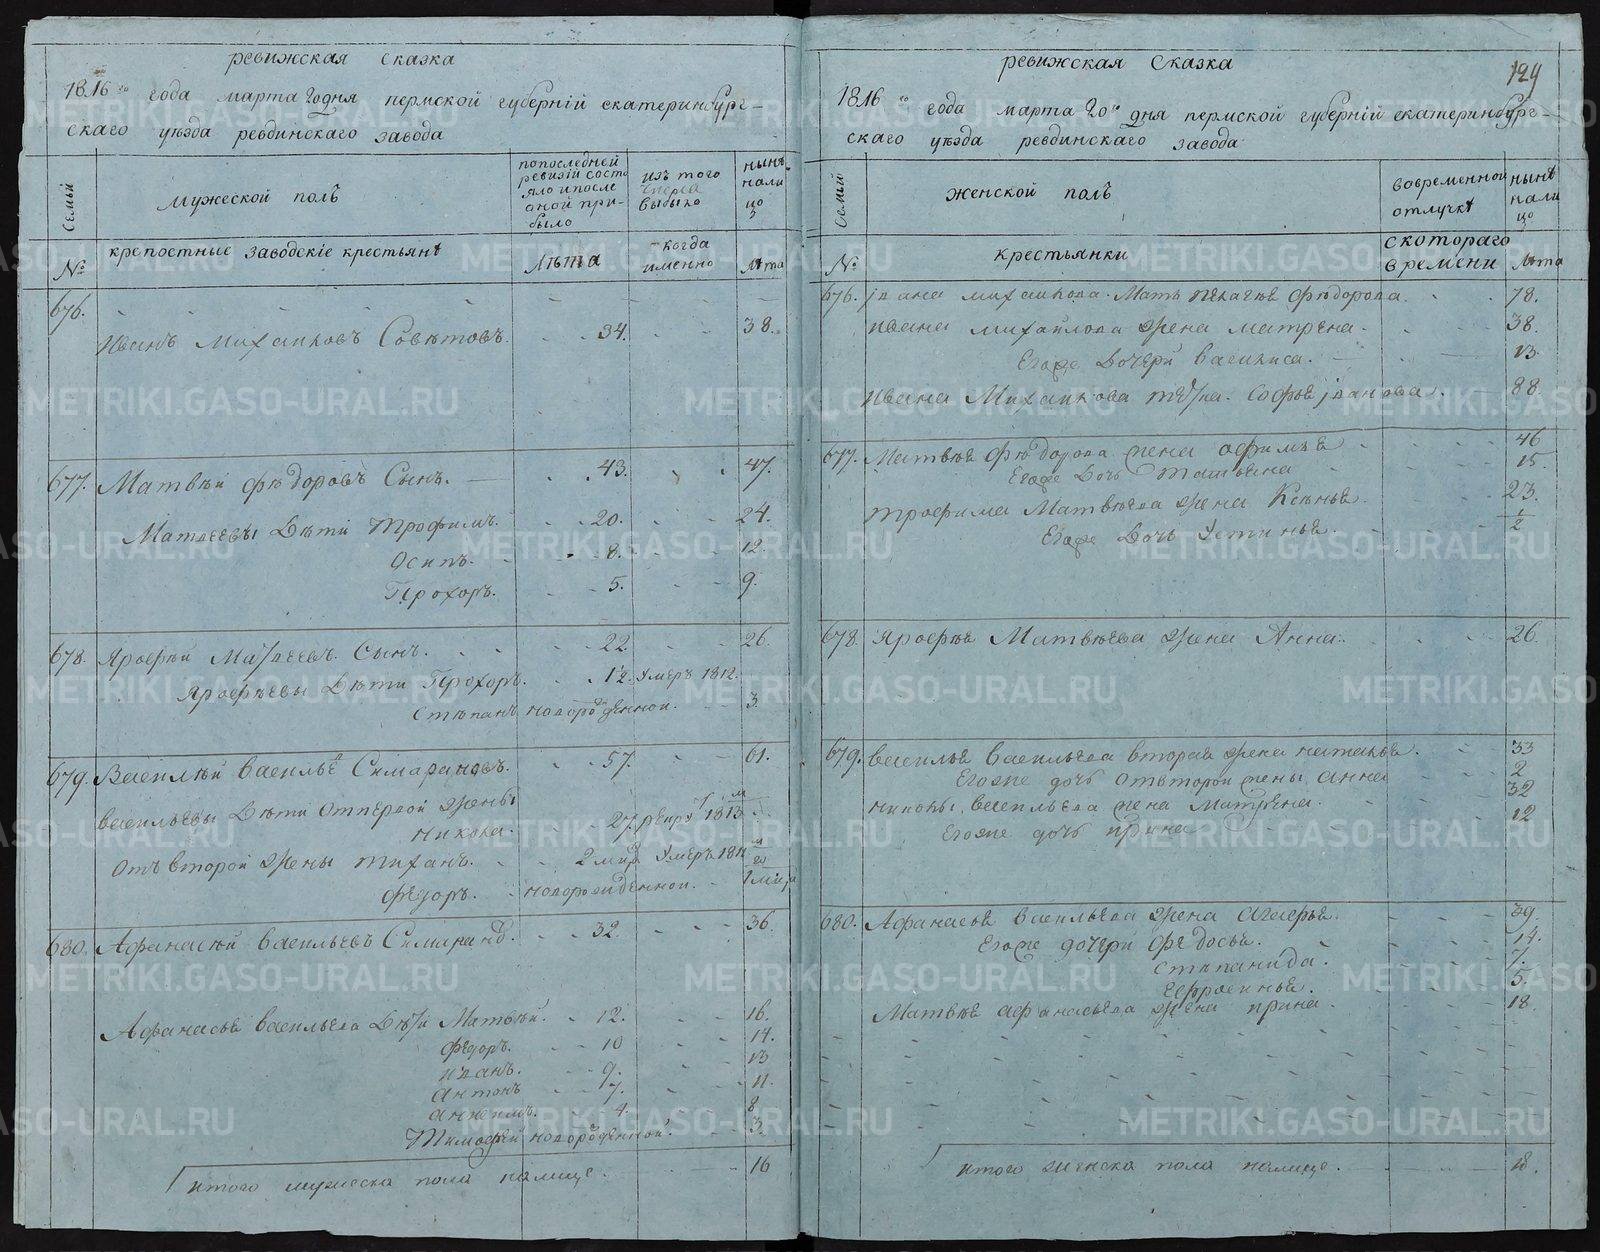 ревижская сказка
1816го года марта 20 дня пермской губерніи екатеринбург-
скаго уѣзда ревдинскаго завода
Семьи
мужеской полъ
попоследней
ревизіи состо
яло ипосле
оной при-
было
изъ того
числа
выбыло
нынѣ
нали
цо
№
крепостные заводскіе крестьянѣ
Лѣта
когда
именно
лѣта
676.
Иванъ Михаиловъ Совѣтовъ. 34. 38.
677. Матвѣй Фѣдоровъ Сынъ. 43. 47.
Матвеевы Дѣти Трофимъ. 20. 24.
Осипъ. 8. 12.
Прохоръ. 5. 9.
678. Ярофѣй Матвеевъ Сынъ. 22. 26.
Ярофѣевы Дѣти Прохоръ. 1½. Умеръ 1812.
Стѣпанъ новорожденной. 3.
679. Василѣй Васильевъ Симарановъ. 57. 61.
Васильевы Дѣти Отпервой жены
Никона. 27. 1813
Отъ второй жены Тиханъ. 2 Умеръ 1811
Федоръ. новорожденной.
680. Афанасѣй Васильевъ Симарановъ. 32. 36.
Афанасьѣ Васильева Дѣти Матвѣй. 12. 16.
Федоръ. 10 14.
Иванъ. 9. 13
Антонъ 7. 11.
4. 8
Тимофей новорожденной. 3.
итого мужеска пола налице. 16
ревижская Сказка
129
1816го года марта 20го дня пермской губерніи екатеринбург-
скаго уѣзда ревдинскаго завода
Семьи
женской полъ
вовременной
отлучкѣ
нынѣ
нали
цо
№
крестьянки
скотораго
времени
лѣта
676. Ивана михаилова Мать Пелагѣя Фѣдорова. 78.
Ивана михайлова жена матрена. 38.
Егоже Дочери Василиса. 13.
Ивана Михаилова Софьѣ Иванова. 88.
677. Матвѣя Фѣдорова жена афимьѣ 46
Егоже Дочь Татьяна 15.
Трофима Матвѣева жена Ксѣньѣ. 23.
Егоже Дочь Устиньѣ. ½
678. Ярофѣѣ Матвѣева жена Анна. 26.
679. Васильѣ Васильева вторая жена натальѣ. 33
Егоже дочь отвторой жены анна 2
Никоны Васильева жена Матрена. 32
Егоже дочь Ирина 12
680. Афанасьѣ Васильева жена 39.
Егоже дочери Федосьѣ. 14.
Степанида. 7.
Ефросиньѣ. 5.
Матвѣѣ афанасьева жена Ирина 18.
итого женска пола налице. 18.
METRIKI.GASO-URAL.RU